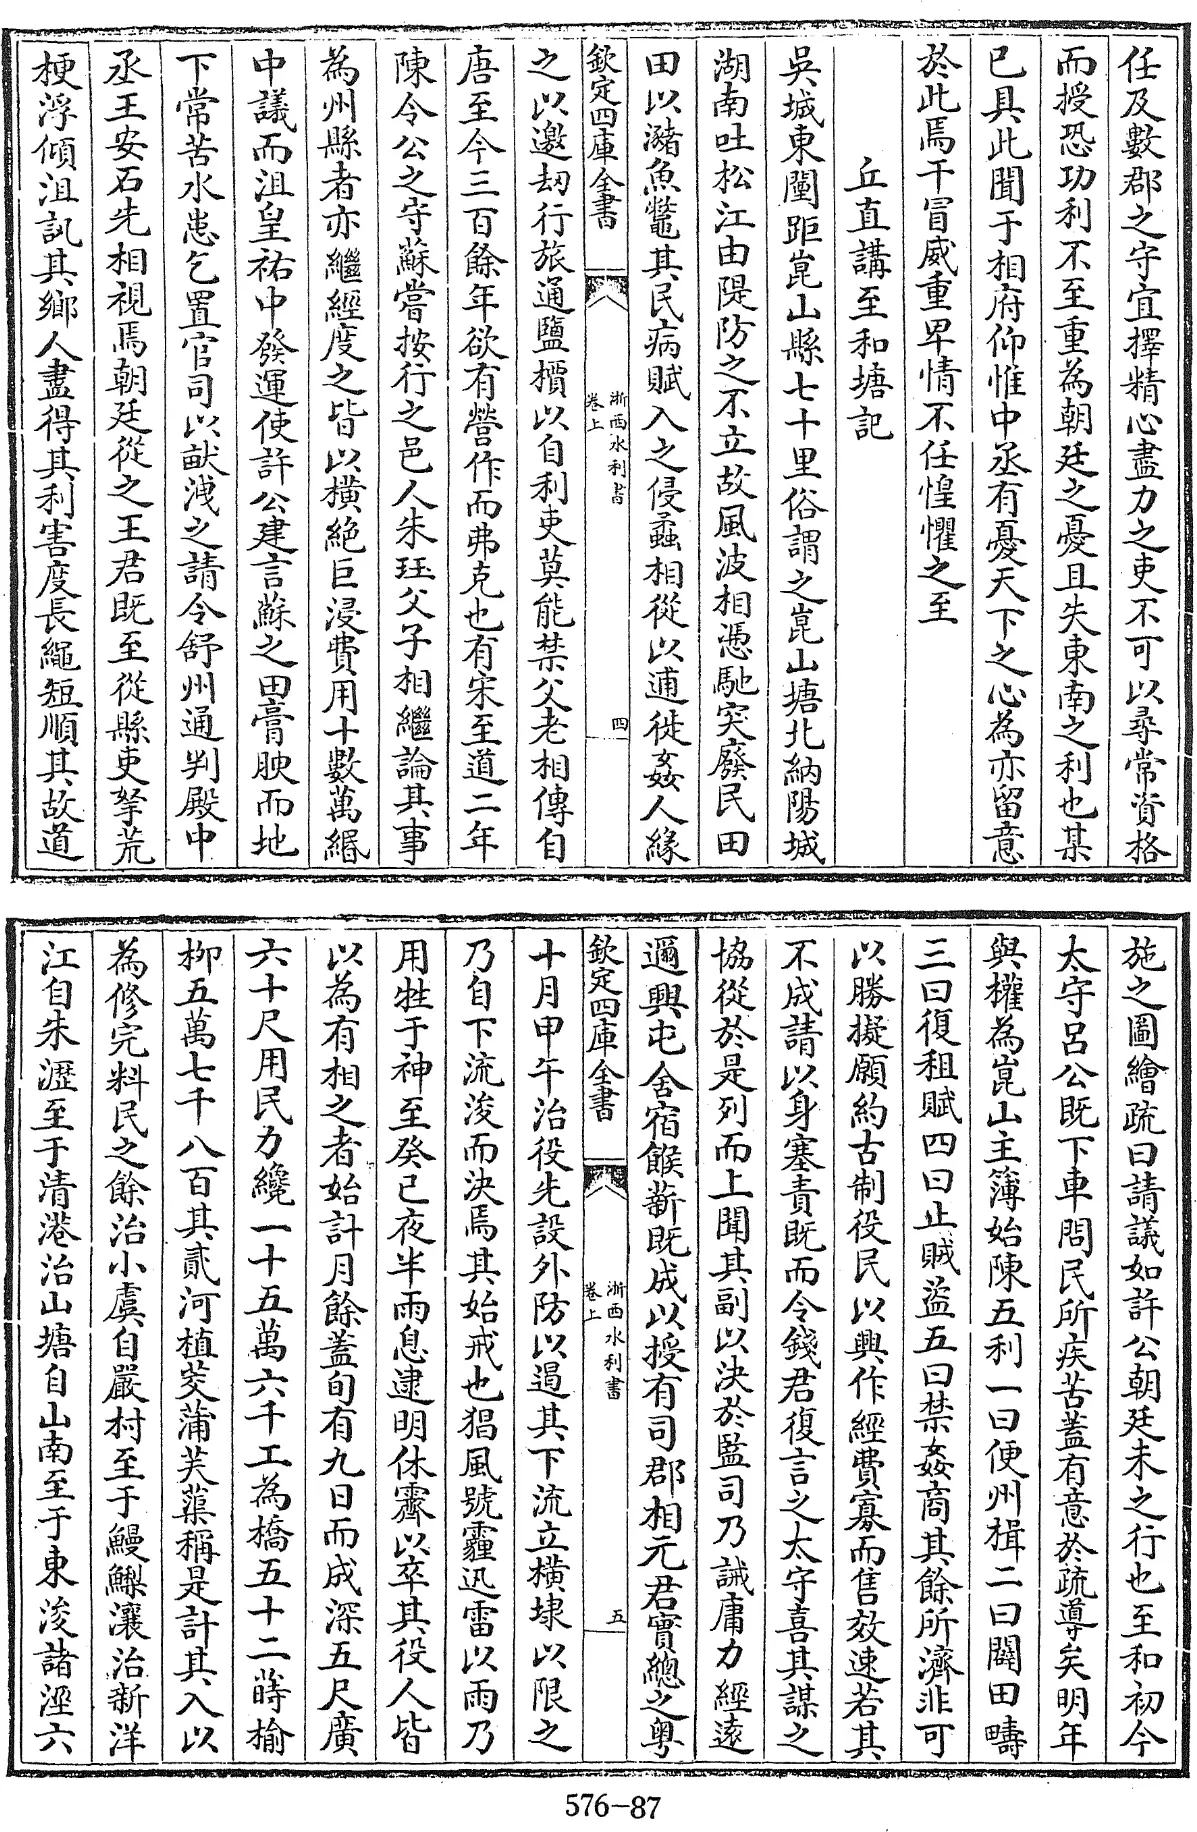 任及數郡之守宜擇精心盡力之吏不可以尋常資格
而授恐功利不至重為朝廷之憂且失東南之利也某
已具此聞于相府仰惟中丞有憂天下之心為亦留意
於此焉干冒威重卑情不任惶懼之至
丘直講至和塘記
吳城東闉距崑山縣七十里俗謂之崑山塘北納陽城
湖南吐松江由隄防之不立故風波相憑馳突廢民田
田以瀦魚鼈其民病賦入之侵蟊相從以逋徙姦人緣
欽定四庫全書
浙西水利書
卷上
四
之以邀刼行旅通鹽櫝以自利吏莫能禁父老相傳自
唐至今三百餘年欲有營作而弗克也有宋至道二年
陳令公之守蘇嘗按行之邑人朱珏父子相繼論其事
為州縣者亦繼經度之皆以橫絕巨浸費用十數萬緡
中議而沮皇祐中發運使許公建言蘇之田膏腴而地
下常苦水患乞置官司以畎洩之請令舒州通判殿中
丞王安石先相視焉朝廷從之王君既至從縣吏拏荒
梗浮傾沮訊其鄉人盡得其利害度長繩短順其故道
施之圖繪疏曰請議如許公朝廷未之行也至和初今
太守呂公既下車問民所疾苦蓋有意於疏導矣明年
與權為崑山主簿始陳五利一曰便州楫二曰闢田疇
三曰復租賦四曰止賊盜五曰禁姦商其餘所濟非可
以勝擬願約古制役民以興作經費寡而售效速若其
不成請以身塞責既而令錢君復言之太守喜其謀之
協從於是列而上聞其副以決於監司乃誡庸力經遠
邇興屯舍宿餱薪既成以授有司郡相元君實總之粵
欽定四庫全書
浙西水利書
卷上
五
十月甲午治役先設外防以遏其下流立橫埭以限之
乃自下流浚而決焉其始戒也猖風號霾迅雷以雨乃
用牲于神至癸已夜半雨息逮明休霽以卒其役人皆
以為有相之者始計月餘蓋旬有九日而成深五尺廣
六十尺用民力纔一十五萬六千工為橋五十二蒔榆
柳五萬七千八百其貳河植茭蒲芙蕖稱是計其入以
為修完料民之餘治小虞自嚴村至于鰻鱺瀼治新洋
江自朱瀝至于清港治山塘自山南至于東浚諸涇六
576-87